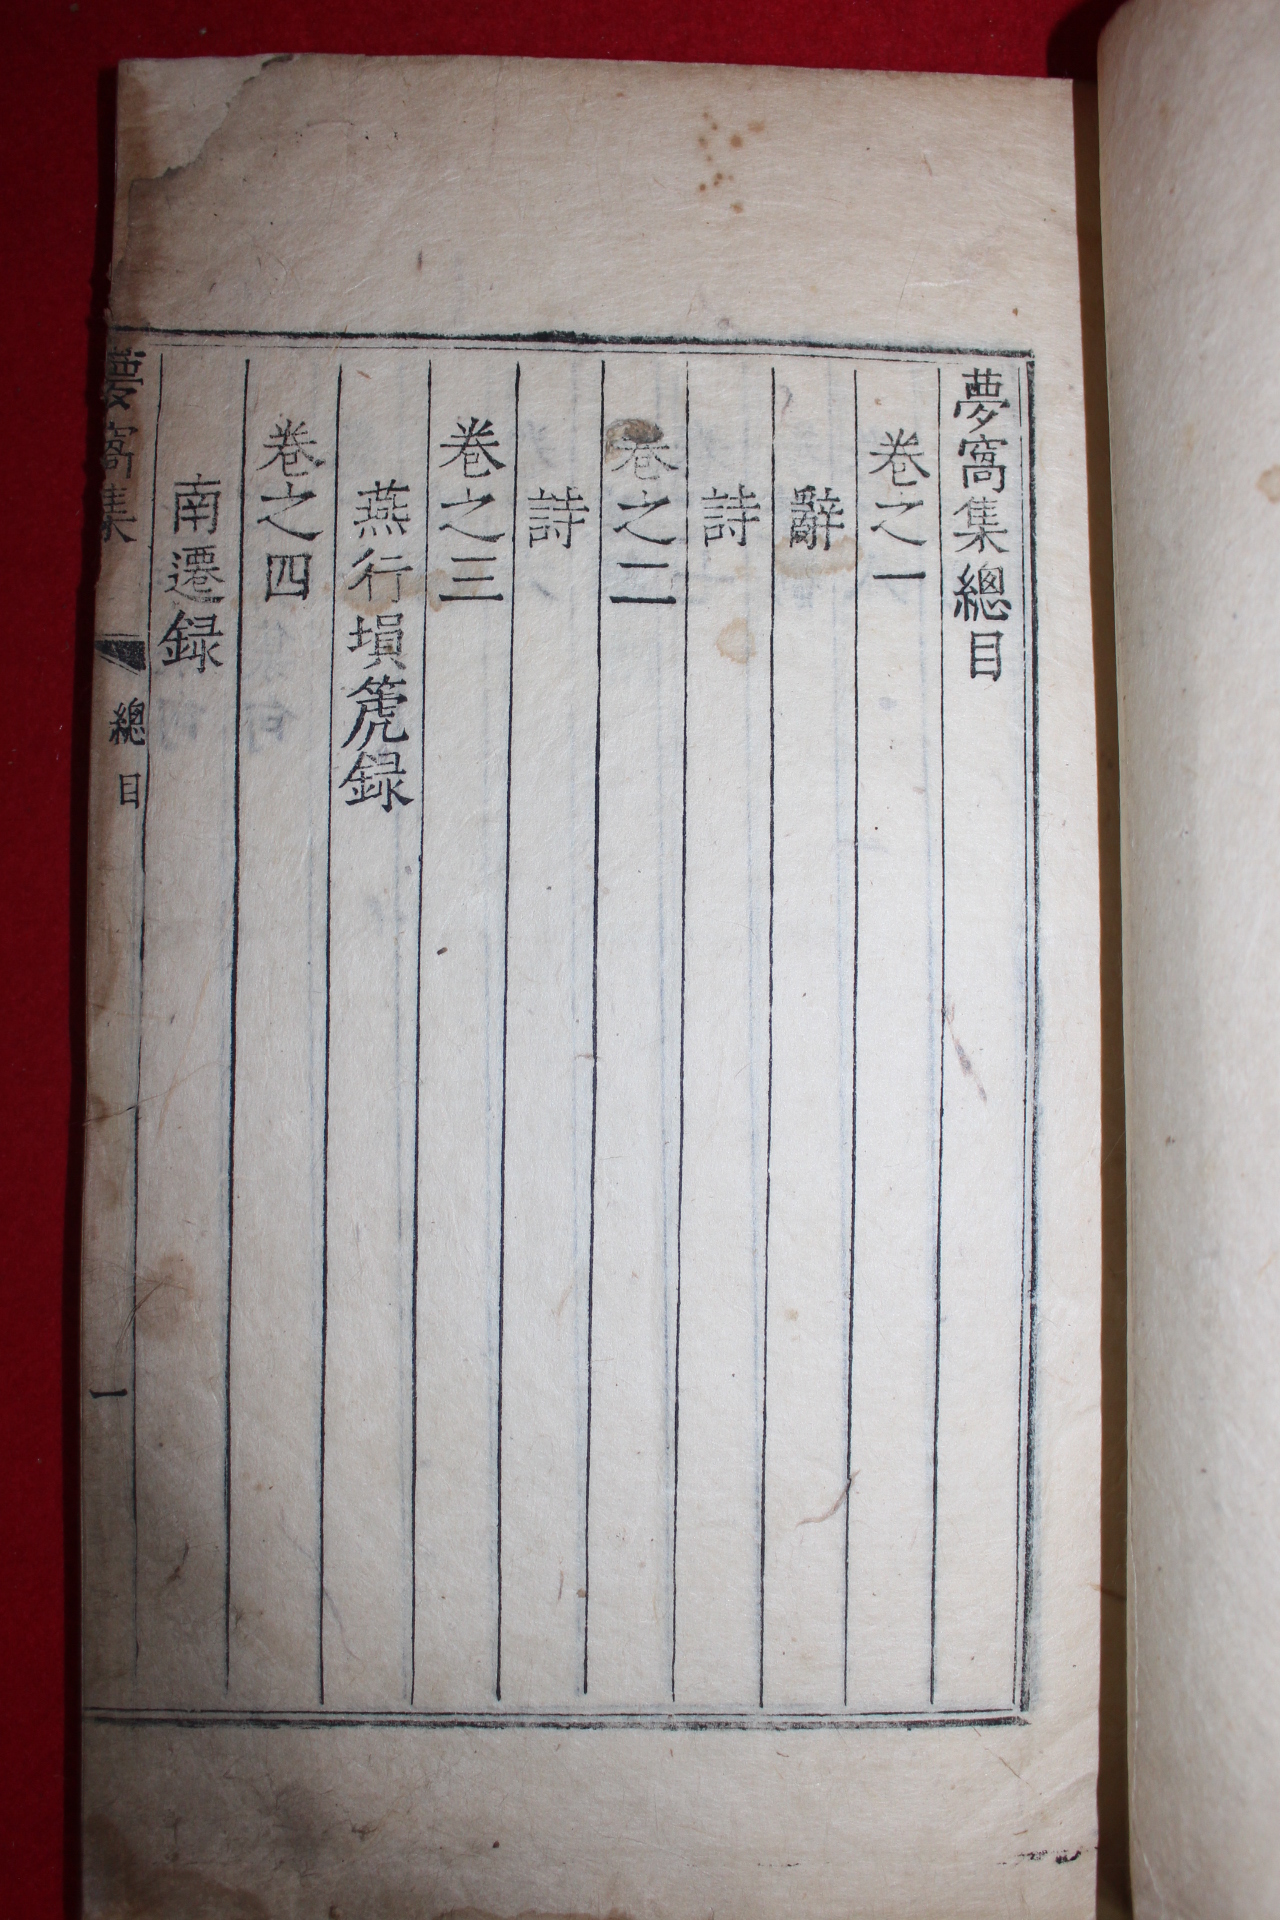 夢窩集總目
卷之一
辭
詩
卷之二
詩
卷之三
燕行塤箎録
卷之四
南遷録
夢窩集
總目
一